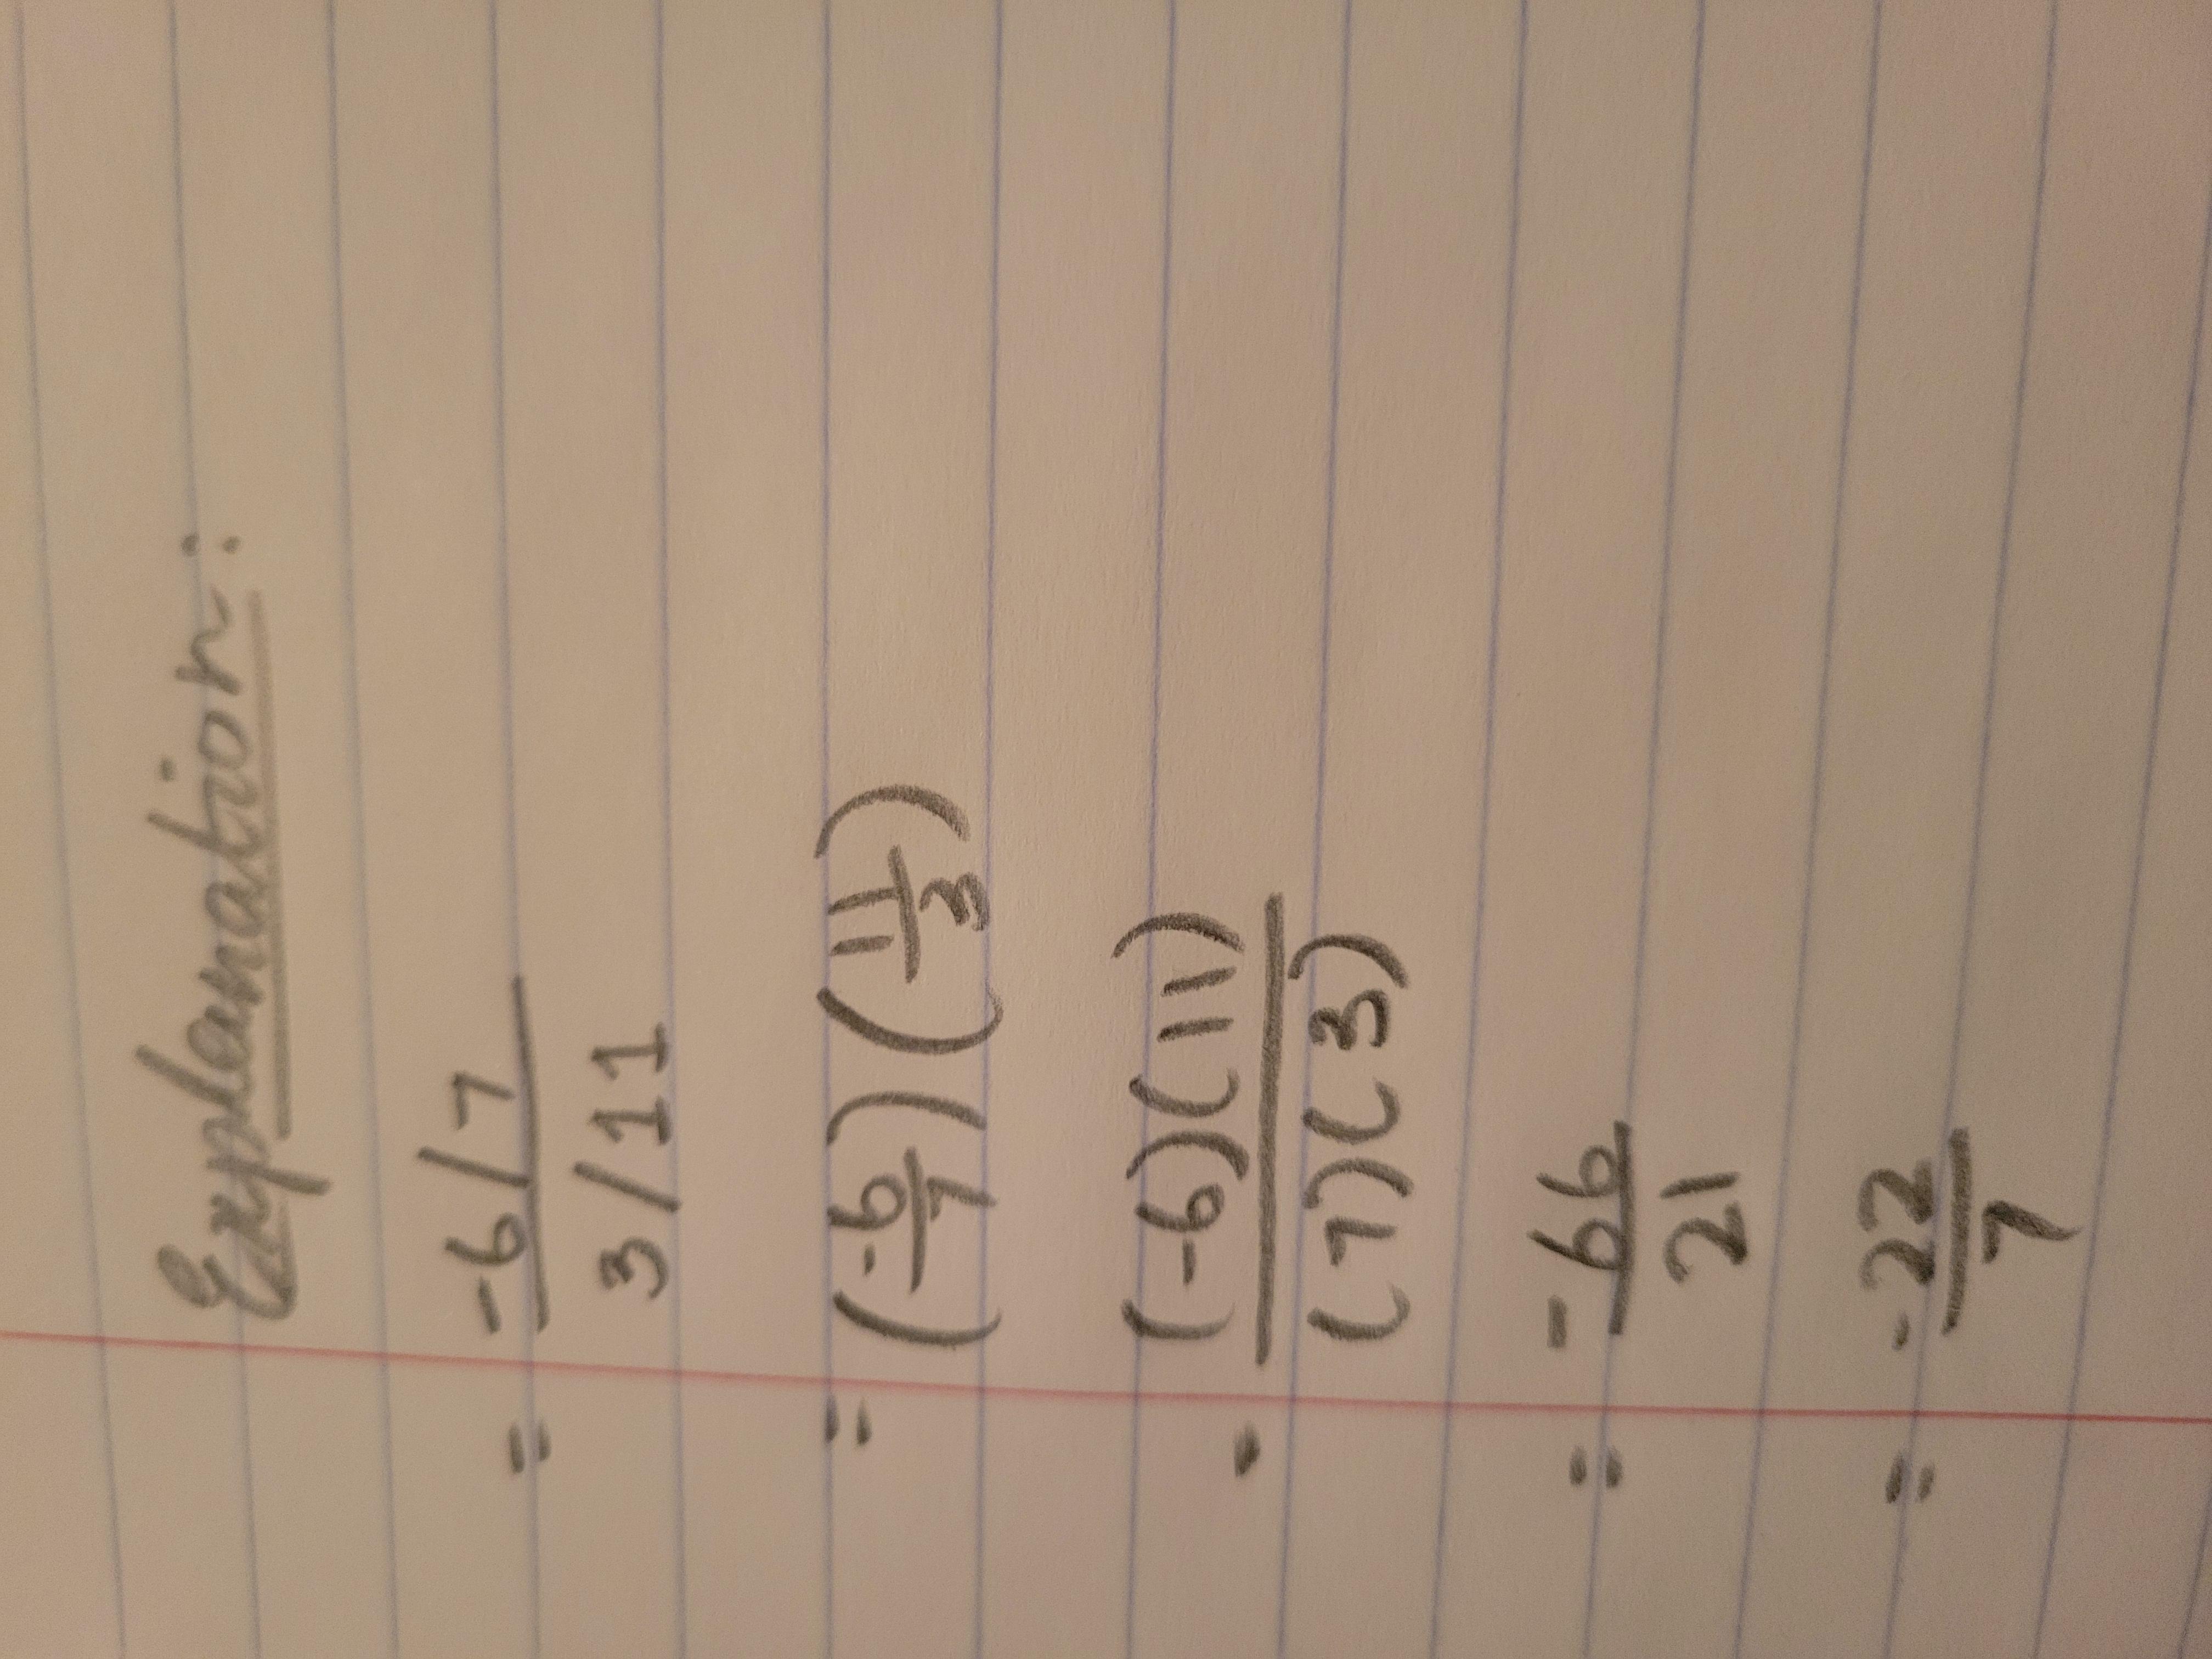 Explanation:
= -6/7
3/11
= (-6/7) (11/3)
- (-6)(11)
(7)(3)
= -66
21
= -22
7